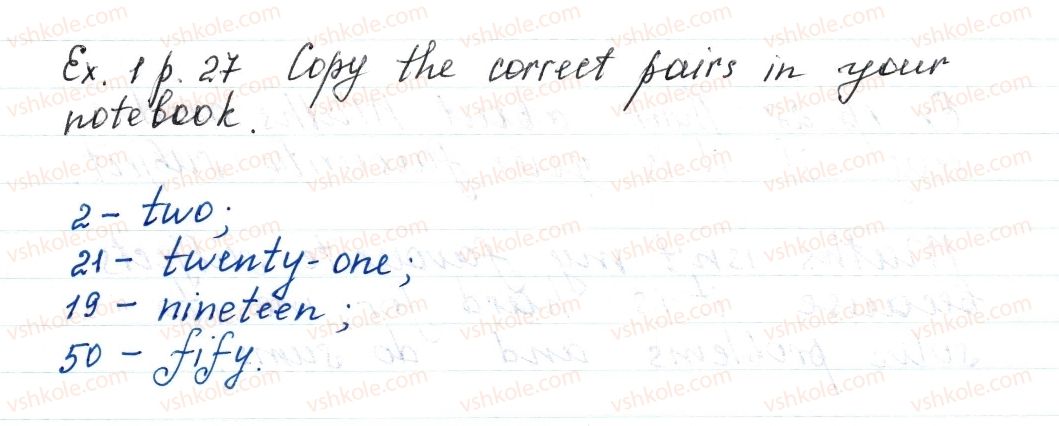 Ex. 1 p. 27 Copy the correct pairs in your
notebook.
2 - two;
21 - twenty-one;
19 - nineteen;
50 - fify.
vshkole.com